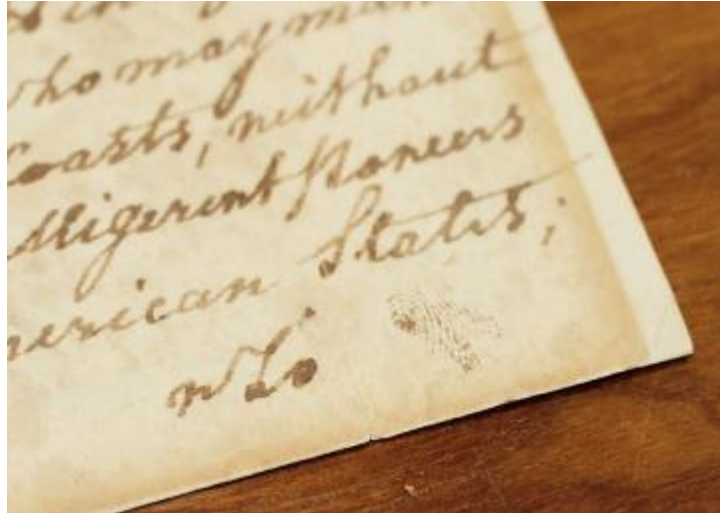 who may man
Coasts, without
lligerent Powers
merican States;
who